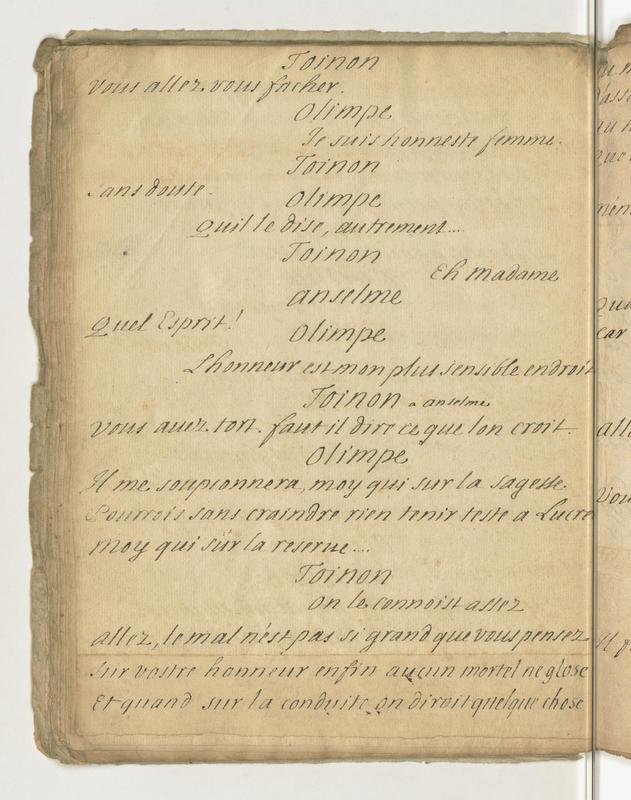 Toinon
vous allez vous facher.
Olimpe
Je suis honneste femme.
Toinon
Sans doute.
Olimpe
Quil le dise, autrement....
Toinon
Eh madame
anselme
Quel Esprit!
Olimpe
Lhonneur est mon plus sensible endroit
Toinon a anselme
vous auez tort. faut il dire ce que lon croit.
Olimpe
Il me soupconnera, moy qui sur la sagesse
Pourrois sans craindre rien tenir teste a Lucre
moy qui sur la reserue....
Toinon
on le connoist assez
allez, le mal nest pas si grand que vous pensez
sur vostre honneur enfin aucun mortel ne glose
Et quand sur la conduite on diroit quelque chose
car